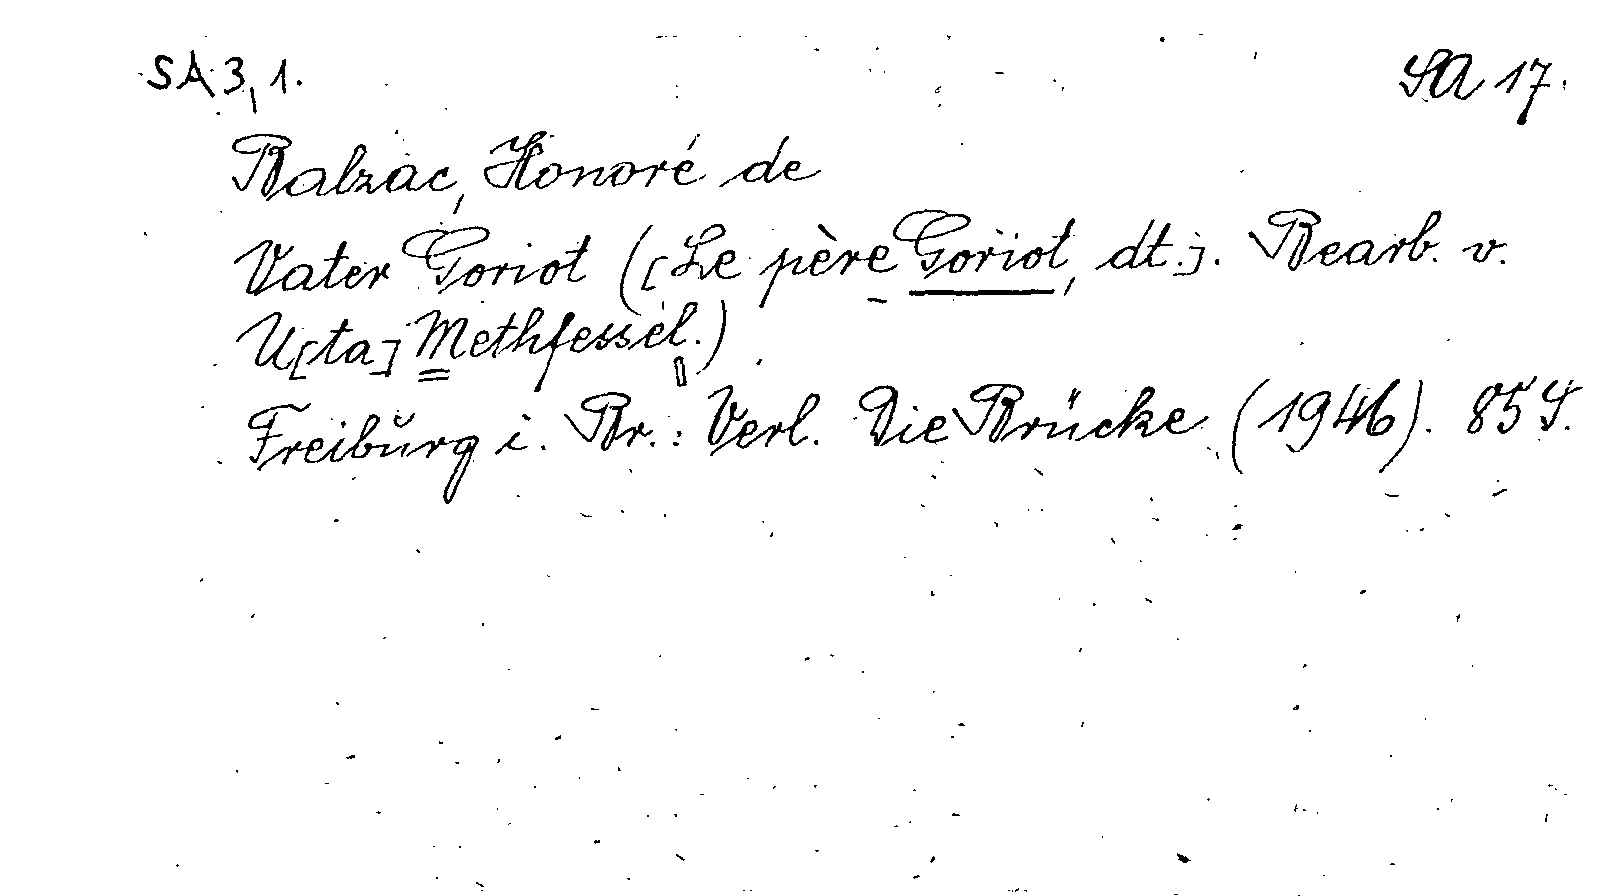 SA 3,1. SA 17.
Balzac, Honoré de
Vater Goriot ([Le père Goriot, dt.]. Bearb. v.
U[ta] Methfessel.)
Freiburg i. Br.: Verl. Die Brücke (1946). 85 S.